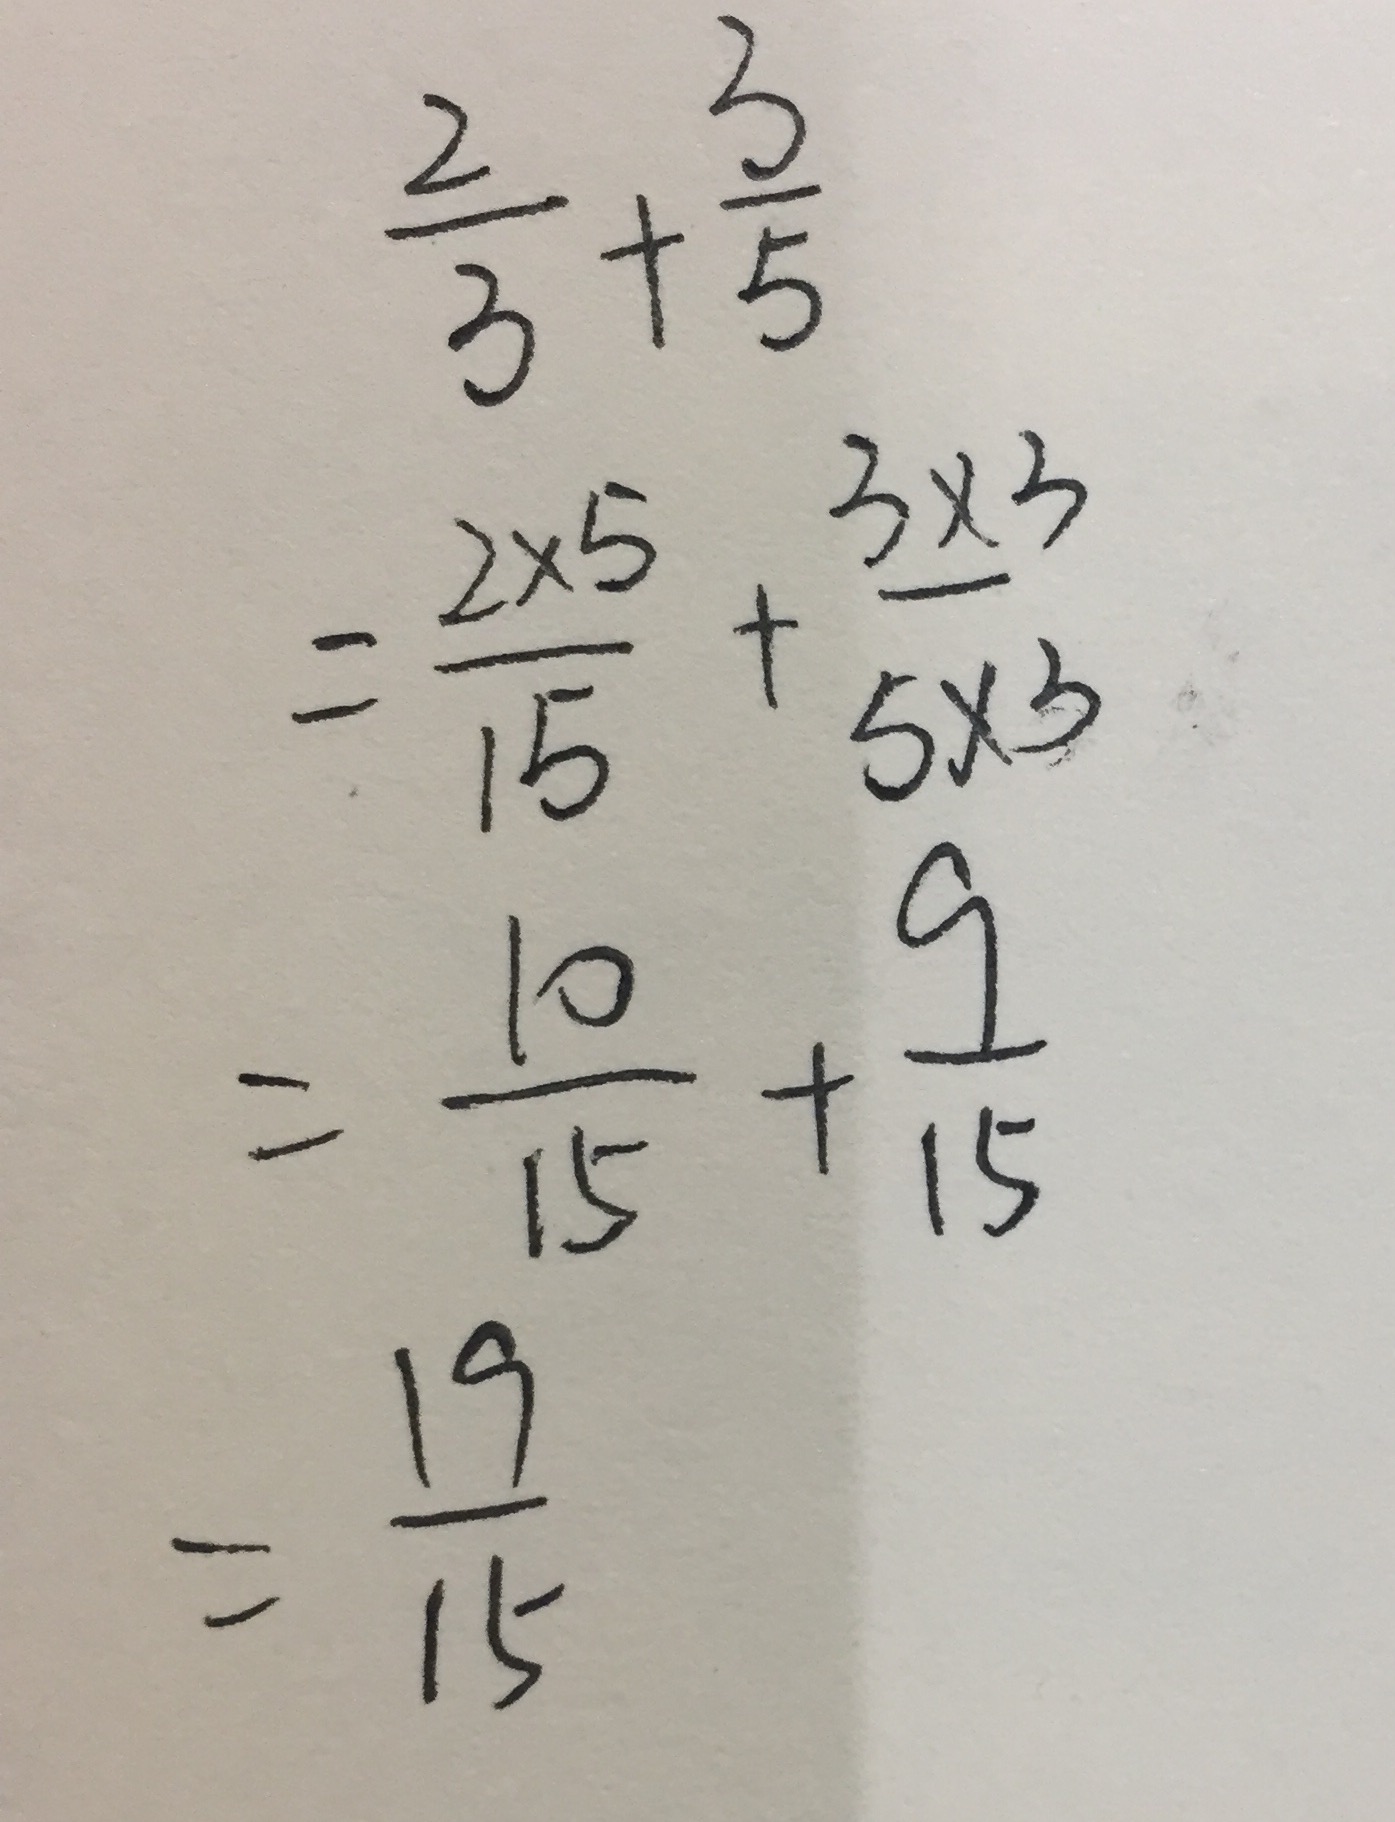 2/3 + 3/5
= 2×5/15 + 3×3/5×3
= 10/15 + 9/15
= 19/15